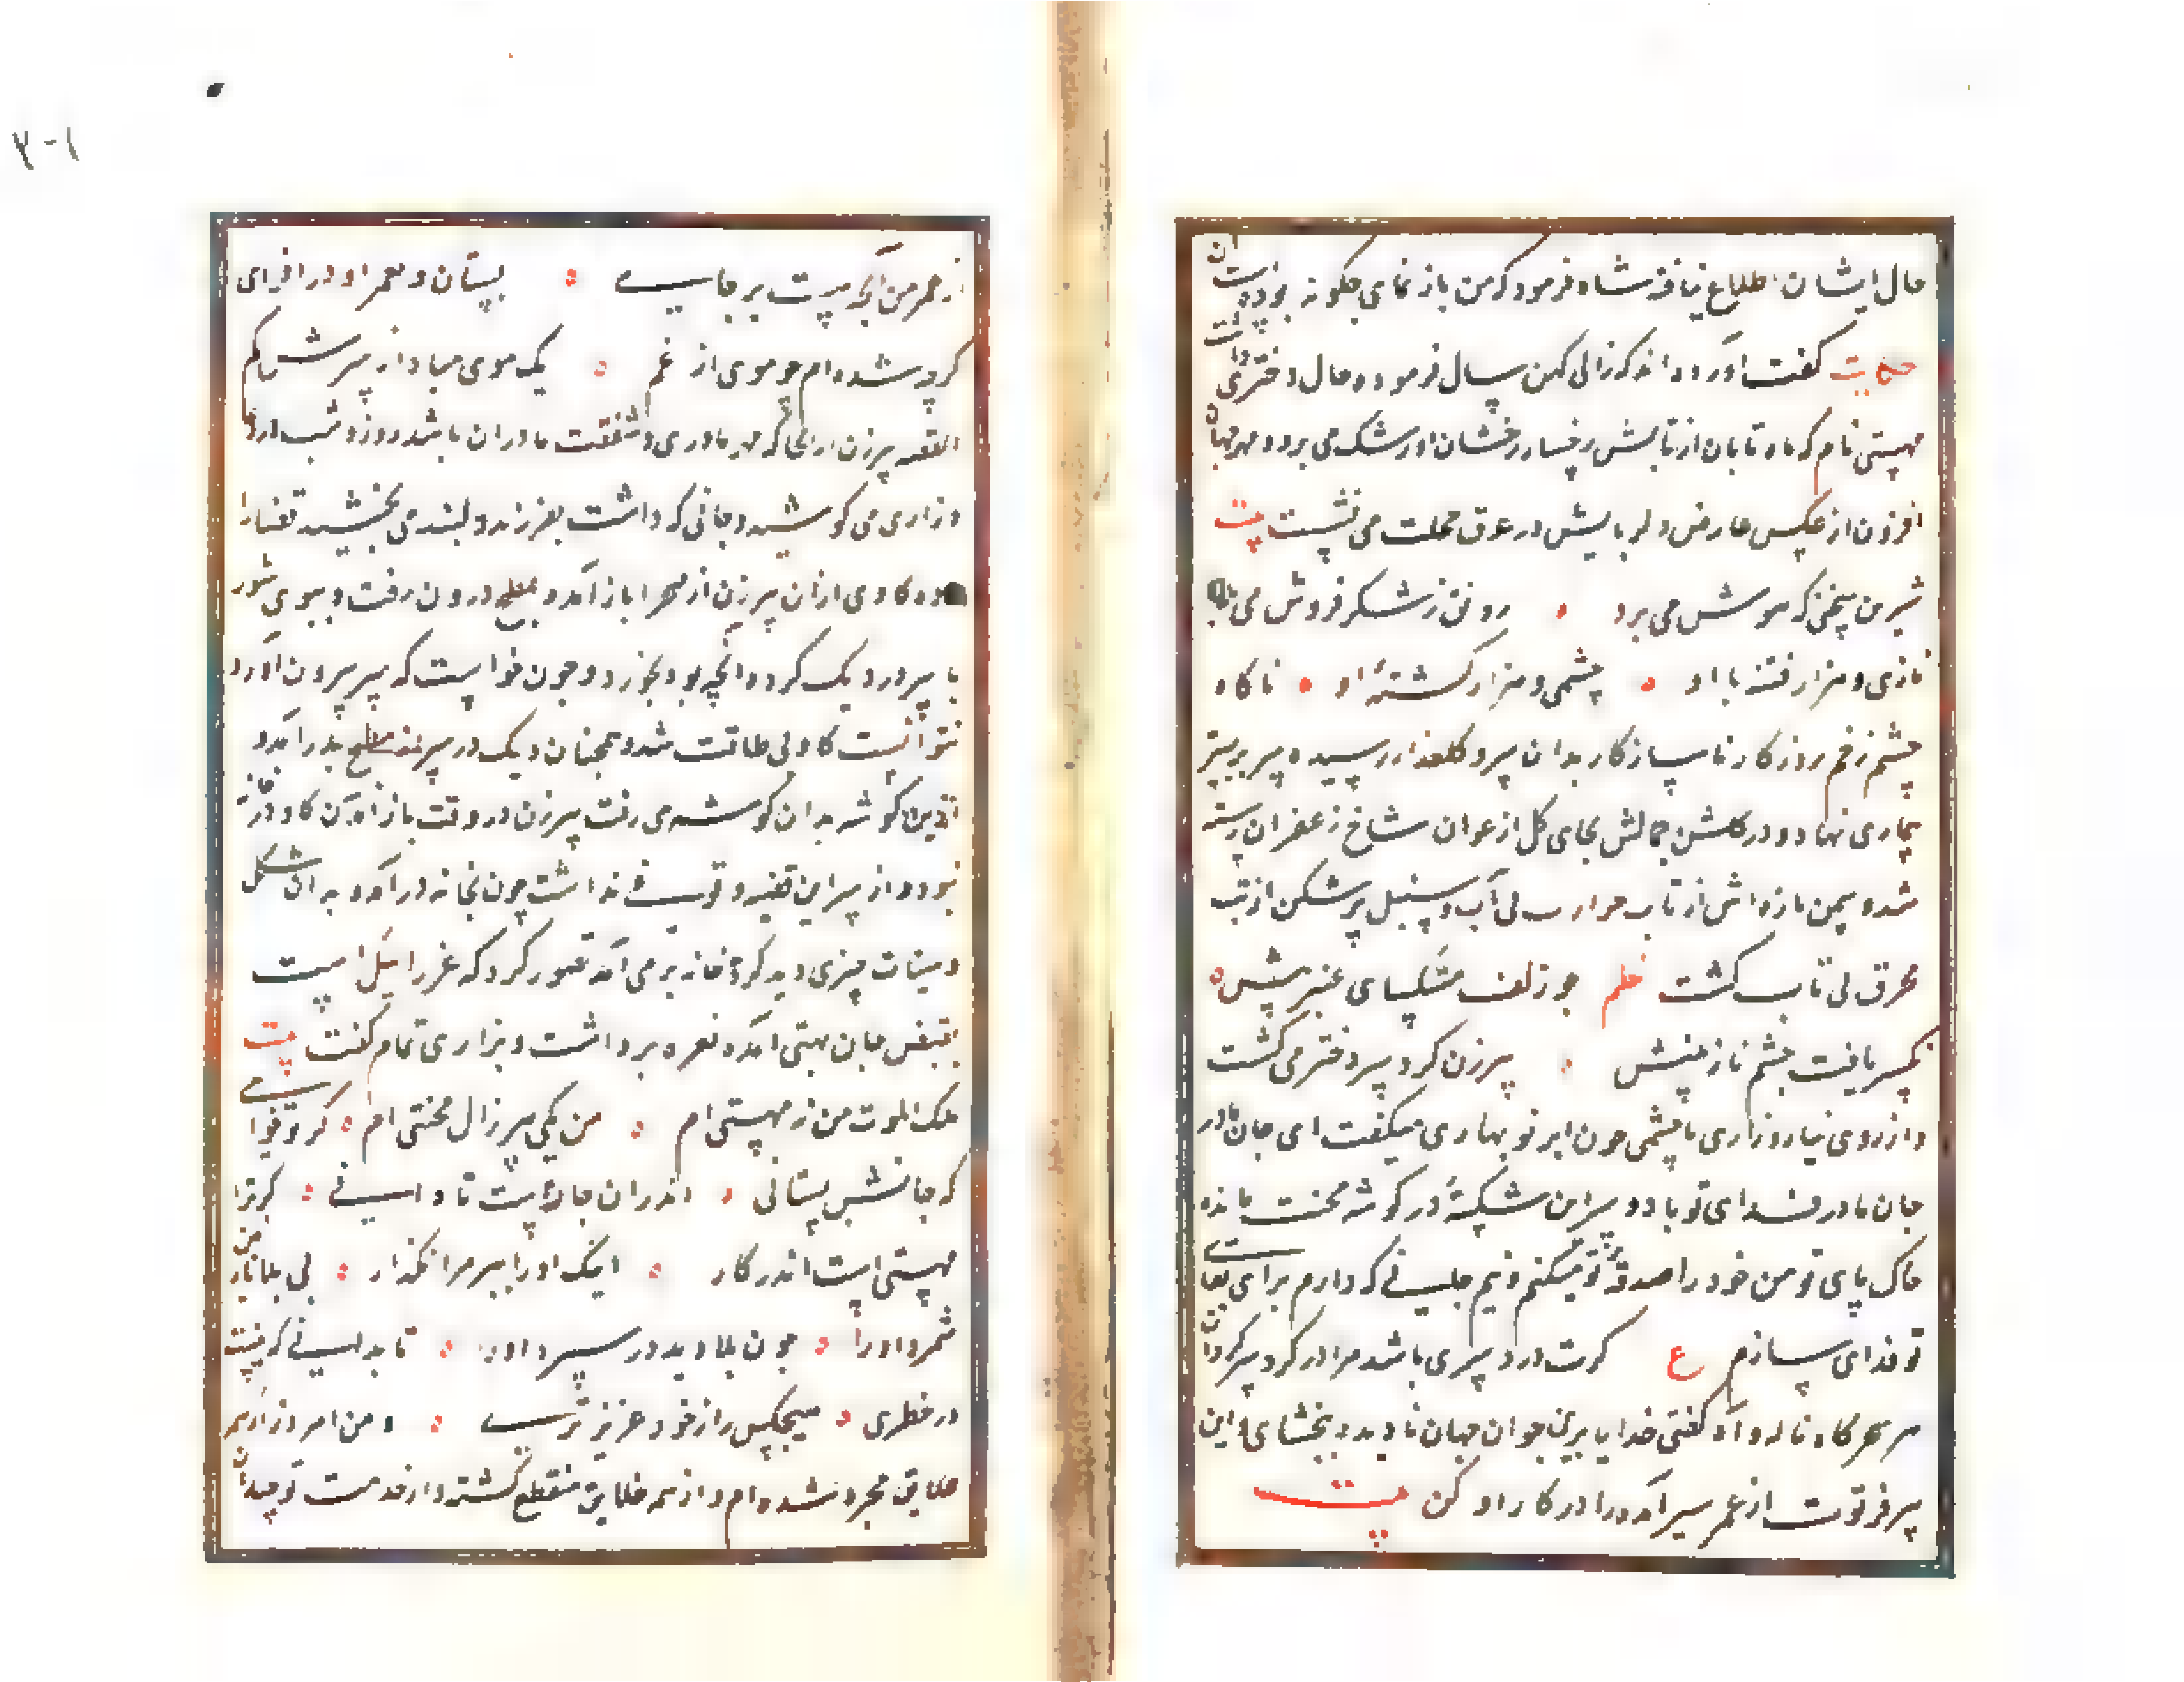 حال ایشان اطلاع نیافته شاه فرمود که من باز نمای چگونه بوده است آن
حکایت گفت آورده اند که زالی کهن سال فرموده حال دختری داشت
مهستی نام که ماه تابان از تابش رخسار رخشان او رشک می برد و مهر جهان
افزون از عکس عارض دلربایش در عرق خجلت می نشست بیت
شیرین سخنی که هوش می برد رونق ز شکر فروش می برد
نازی و هزار فتنه با او چشمی و هزار کشته او ناگاه
چشم زخم روزگار ناسازگار بدان سرو گلعذار رسیده سر بر بستر
بیماری نهاد و در گلشن جمالش بجای گل ارغوان شاخ زعفران رسته
شد و سمن تازه اش از تاب حرارت بی آب و سنبل پر شکن از تب
محرق بی تاب گشت نظم چو زلف مشکسای عنبرینش
پیرزن گرد سر دختر می گشت
و از روی نیاز و زاری با چشمی چون ابر نو بهاری میگفت ای جان مادر
جان مادر فدای تو باد و سر این شکسته در گوشه محنت مانده
خاک پای تو من خود را صدقه تو میکنم و نیم جانی که دارم برای بقای
تو فدای سازم ع گرت درد سری باشد مرا در گرد سر گردان
هر سحرگاه ناله و آه گفتی خدایا برین جوان جهان نادیده ببخشای و این
پیر فرتوت از عمر سیر آمده را در کار او کن بیت
از عمر من آنچه هست بر جای بستان و بعمر او در افزای
گرچه شده ام چو موی از غم یک موی مباد از سرش کم
القصه پیرزن از آنجا که مهر مادری و شفقت مادران باشد روز و شب
و زاری می کوشید و جانی که داشت بفرزند دلبند می بخشید قضا را
ماده گاوی از آن پیرزن از صحرا باز آمد و بمطبخ درون رفت و ببوی شور
با سر در دیگ کرده آنچه بود بخورد و چون خواست که سر بیرون آورد
نتوانست گاو بی طاقت شد و همچنان دیگ در سر از مطبخ بدر آمد و
ازین گوشه بدان گوشه می رفت پیرزن در وقت باز آمدن گاو در خانه
نبود و از سر این قضیه وقوفی نداشت چون بخانه در آمد و به آن شکل
و هیئات چیزی دید که گرد خانه بر می آمد تصور کرد که عزرائیل است
بقبض جان مهستی آمده نعره برداشت و بزاری تمام گفت بیت
ملک الموت من نه مهستی ام من یکی پیرزال محنتی ام گر تو خواهی
که جانش بستانی اندران جا است تا دانی گر ترا
مهستی است اندر کار اینک او را ببر مرا بگذار بی بلا نازنین
شمرد او را چون بلا دید در سپرد او را تا بدانی که نیست
در خطری هیچکس را از خود عزیزتری و من امروز از همه
علایق مجرد شده ام و از همه خلایق منقطع گشته و از خدمت تو چندان